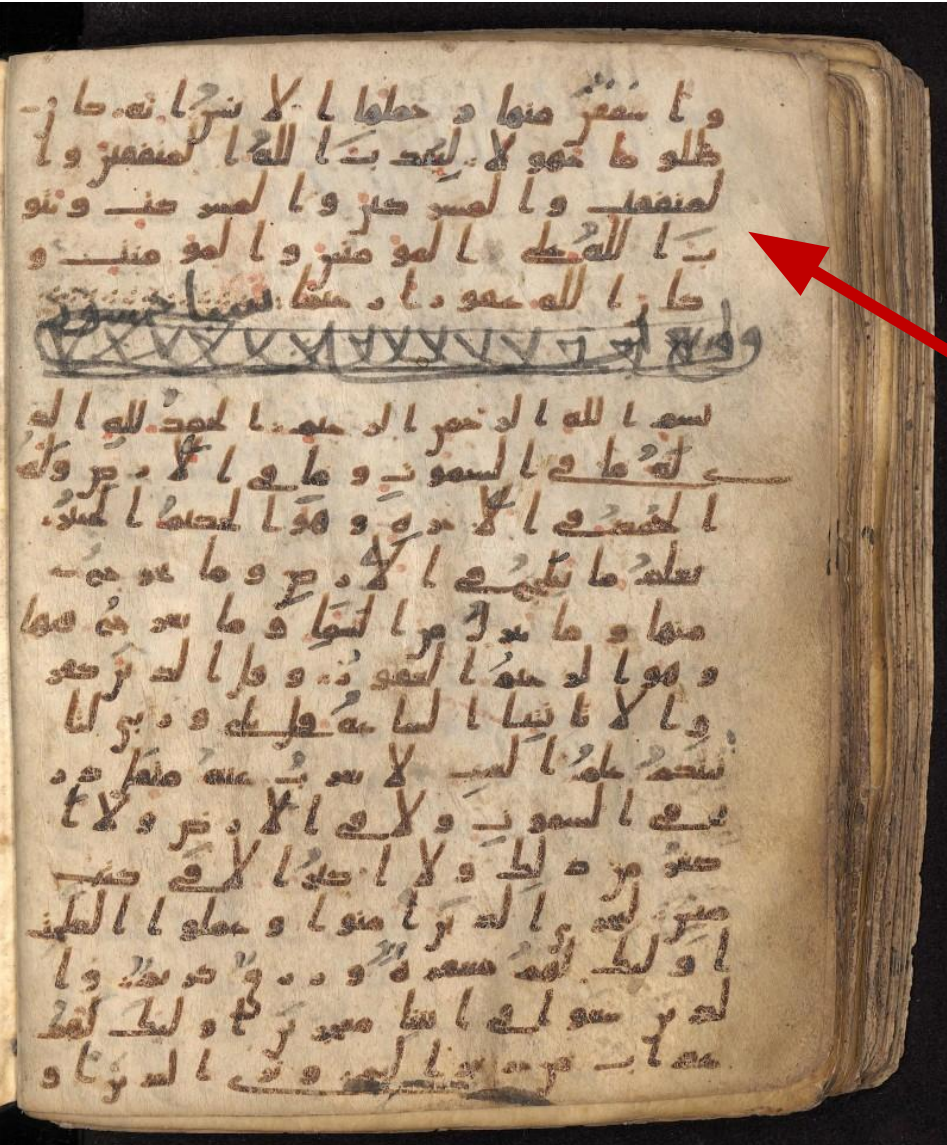 وا شفقن منها وحملها الانسن انه كان
ظلوما جهولا ليعذب الله المنفقين وا
لمنفقت والمشركين والمشركت ويتو
ب الله على المومنين والمومنت و
كان الله غفورا رحيما
بسم الله الرحمن الرحيم الحمد لله الذ
ى له ما فى السموت وما فى الارض وله
الحمد فى الاخرة وهو الحكيم الخبير
يعلم ما يلج فى الارض وما يخرج
منها وما ينزل من السما وما يعرج فيها
وهو الرحيم الغفور وقل الذين كفر
وا لا تاتينا الساعة قل بلى وربى لتا
تينكم علم الغيب لا يعزب عنه مثقل ذر
ة فى السموت ولا فى الارض ولا ا
صغر من ذلك ولا اكبر الا فى كتب
مبين ليجزى الذين امنوا وعملوا الصلحت
اولئك لهم مغفرة ورزق كريم وا
لذين سعو فى ايتنا معجزين اولئك لهم
عذاب من رجز اليم ويرى الذين او